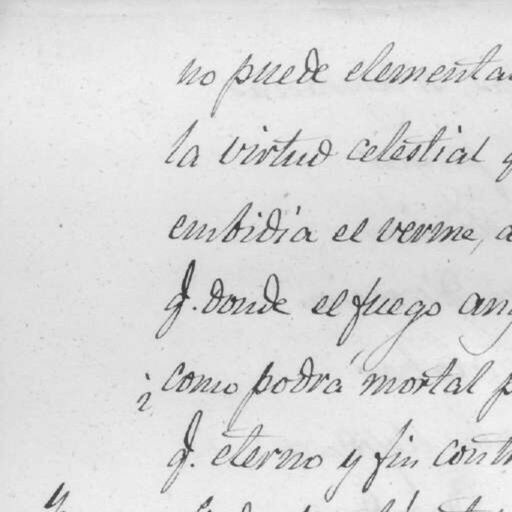 no puede elementa
la virtud celestial q
embidia el verme, a
q. donde el fuego ang
¿como podrá mortal p
q. eterno y fin cont
y